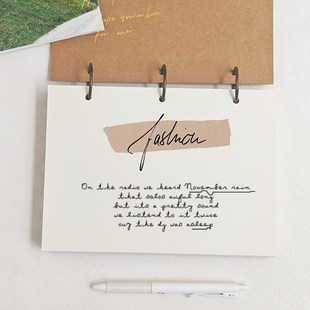 for me
fashion
On the radio we heard November rain
that solos awful long
but it's a pretty sound
we listend to it twice
cuz the dj was asleep